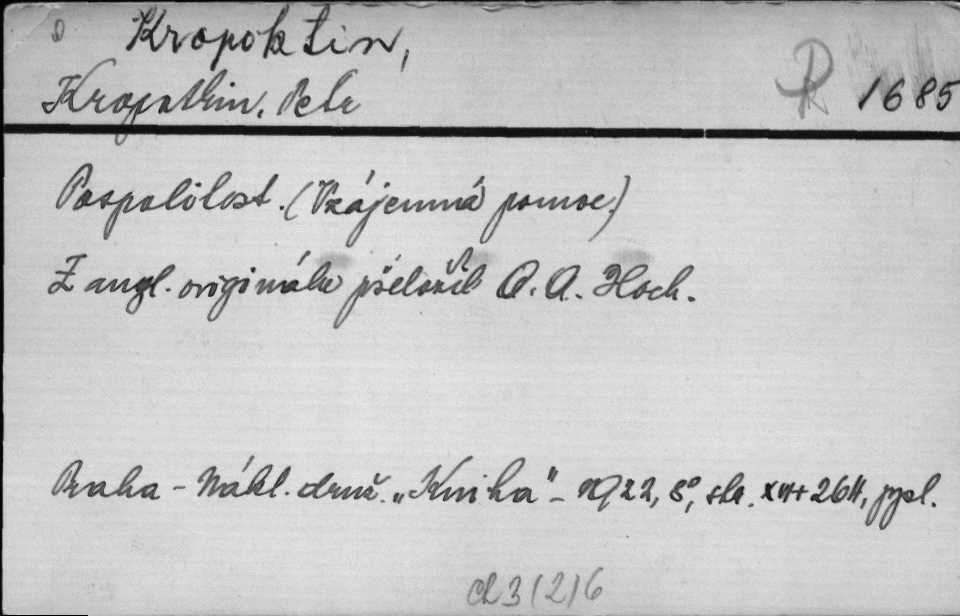 Kropoktin,
Kropotkin, Petr
R 1685
Pospolitost. (Vzájemná pomoc)
Z angl. originálu přeložil A. A. Hoch.
Praha - Nákl. druž. „Kniha" - 1922, 8°, str. 264,
3/2/6